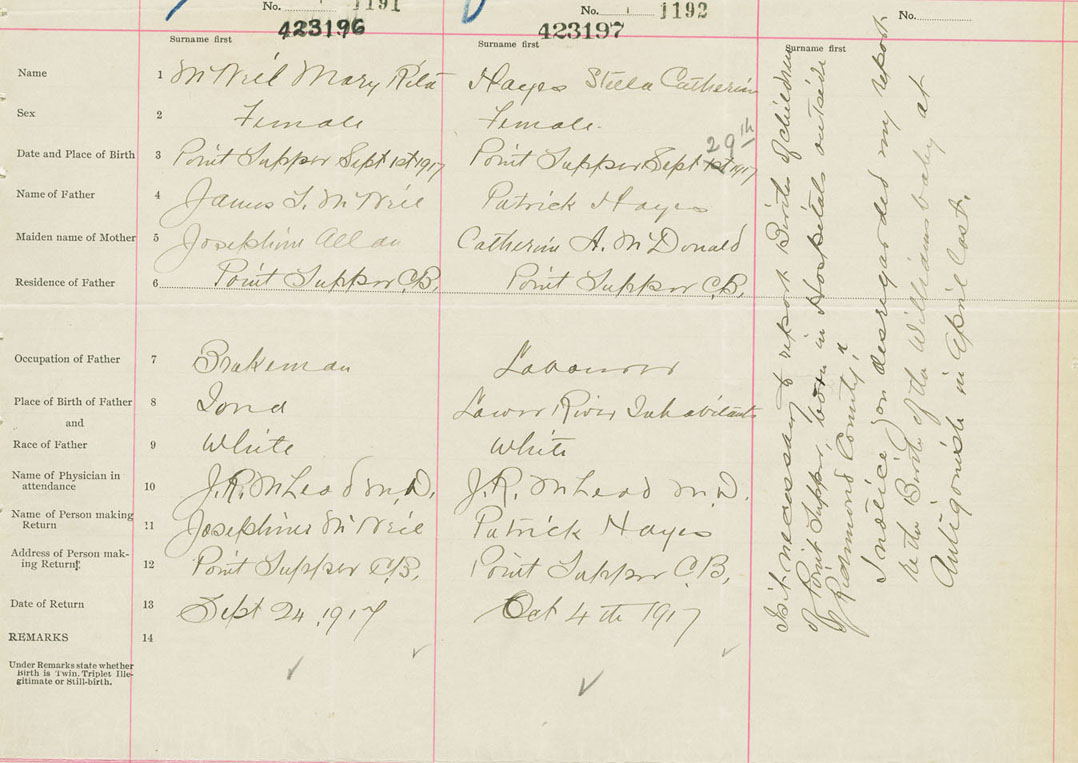 No. 1191
No. 1192
No.
423196
423197
Surname first
Surname first
Surname first
Name 1 McNeil Mary Rita Hayes Stella Catherin
Sex 2 Female Female.
29th
Date and Place of Birth 3 Point Tupper Sept 1st 1917 Point Tupper Sept 1st 1917
Name of Father 4 James T. McNeil Patrick Hayes
Maiden name of Mother 5 Josephine Allan Catherin A. McDonald
Residence of Father 6 Point Tupper C.B. Point Tupper C.B.
Occupation of Father 7 Brakeman Labourer
Place of Birth of Father 8 Iona Lower River Inhabitants
and
Race of Father 9 White White
Name of Physician in
attendance 10 J.R. McLeod M.D. J.R. McLeod M.D.
Name of Person making
Return 11 Josephine McNeil Patrick Hayes
Address of Person mak-
ing Return. 12 Point Tupper C.B. Point Tupper C.B.
Date of Return 13 Sept 24, 1917 Oct 4th 1917
REMARKS 14
Under Remarks state whether
Birth is Twin. Triplet Ille-
gitimate or Still-birth.
Is it necessary to report Births of children
of Point Tupper, born in Hospitals outside
of Richmond County,
I notice you disregarded my report
re the Birth of the Williams baby at
Antigonish in April last.